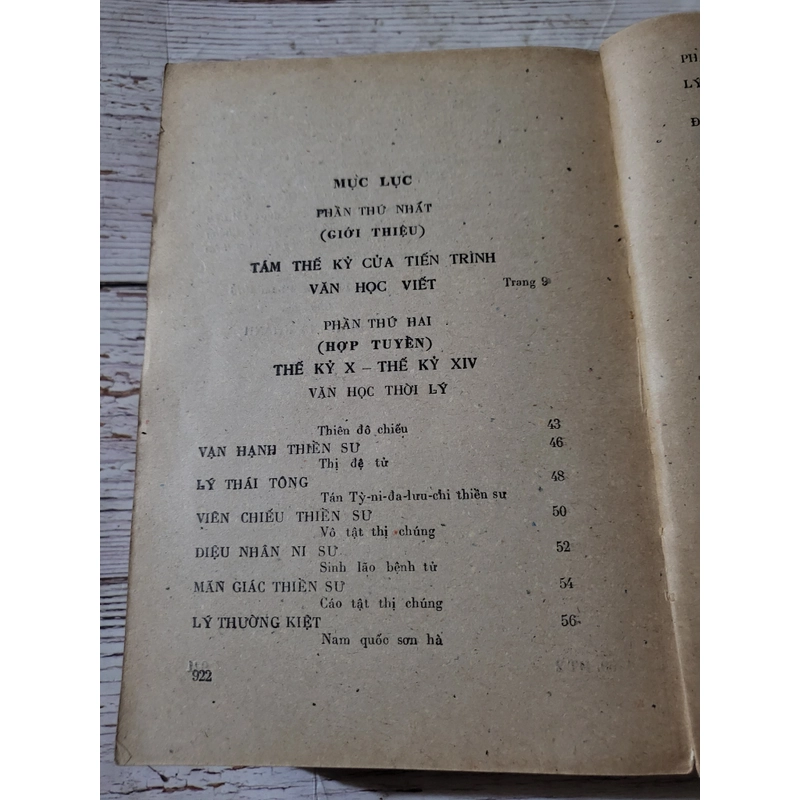 MỤC LỤC
PHẦN THỨ NHẤT
(GIỚI THIỆU)
TÁM THẾ KỶ CỦA TIẾN TRÌNH
VĂN HỌC VIẾT Trang 9
PHẦN THỨ HAI
(HỢP TUYỂN)
THẾ KỶ X – THẾ KỶ XIV
VĂN HỌC THỜI LÝ
Thiên đô chiếu 43
VẠN HẠNH THIỀN SƯ 46
Thị đệ tử
LÝ THÁI TÔNG 48
Tán Tỳ-ni-đa-lưu-chi thiền sư
VIÊN CHIẾU THIỀN SƯ 50
Vô tật thị chúng
DIỆU NHÂN NI SƯ 52
Sinh lão bệnh tử
MÃN GIÁC THIỀN SƯ 54
Cáo tật thị chúng
LÝ THƯỜNG KIỆT 56
Nam quốc sơn hà
922
PH
LÝ
Đ